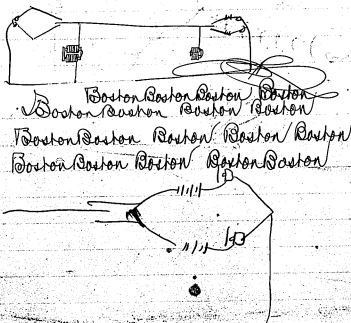 Boston Boston Boston Boston
Boston Boston Boston Boston
Boston Boston Boston Boston Boston
Boston Boston Boston Boston Boston